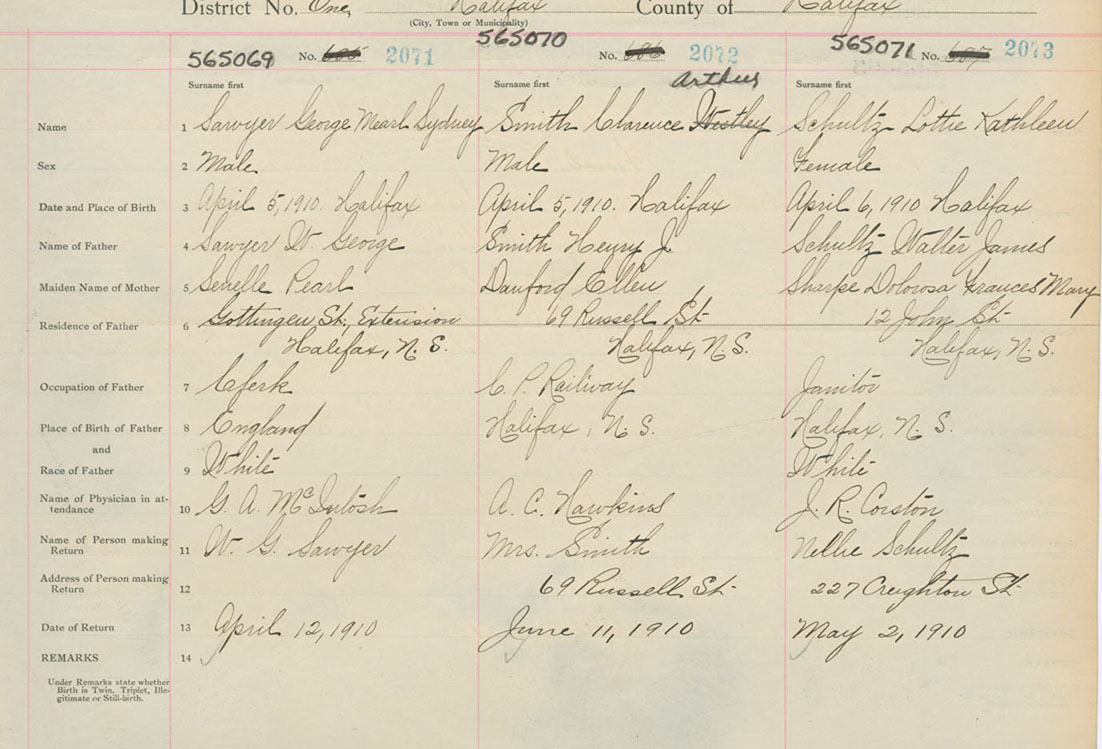 District No. One, Halifax County of Halifax
(City, Town or Municipality)
565069 No. 605 2071 565070 No. 606 2072 565071 No. 607 2073
Arthur
Surname first Surname first Surname first
Name 1 Sawyer George Mearl Sydney Smith Clarence Westley Schultz Lottie Kathleen
Sex 2 Male Male Female
Date and Place of Birth 3 April 5, 1910. Halifax April 5, 1910. Halifax April 6, 1910 Halifax
Name of Father 4 Sawyer W. George Smith Henry J. Schultz Walter James
Maiden Name of Mother 5 Senelle Pearl Danford Ellen Sharpe Dolorosa Frances Mary
Residence of Father 6 Gottingen St., Extension 69 Russell St. 12 John St.
Halifax, N. S. Halifax, N.S. Halifax, N.S.
Occupation of Father 7 Clerk C. P. Railway Janitor
Place of Birth of Father 8 England Halifax, N. S. Halifax, N. S.
and
Race of Father 9 White White
Name of Physician in at-
tendance 10 G. A. McIntosh A. C. Hawkins J. R. Corston
Name of Person making
Return 11 W. G. Sawyer Mrs. Smith Nellie Schultz
Address of Person making
Return 12 69 Russell St. 227 Creighton St.
Date of Return 13 April 12, 1910 June 11, 1910 May 2, 1910
REMARKS 14
Under Remarks state whether
Birth is Twin, Triplet, Ille-
gitimate or Still-birth.